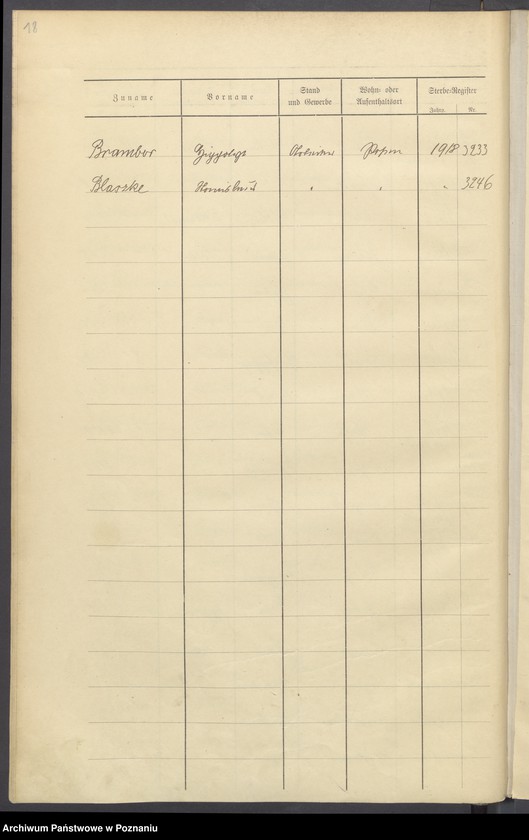 18
Zuname Vorname Stand und Gewerbe Wohn- oder Aufenthaltsort Sterbe-Register
Jahrg. Nr.
Brambor Arbeiter Posen 1918 3233
Blaszke Stanislaus " " " 3246
Archiwum Państwowe w Poznaniu